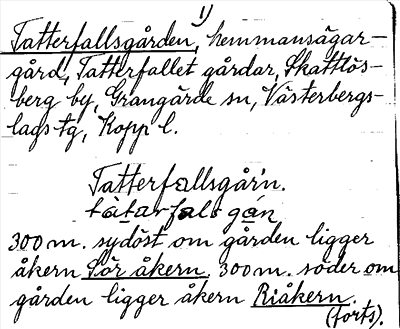 1)
Tatterfallsgården, hemmansägar-
gård, Tatterfallet gårdar, Skattlös-
berg by, Grangärde sn, Västerbergs-
lags tg, Kopp l.
Tatterfallsgår'n.
tàtarfals gán
300 m. sydöst om gården ligger
åkern Sör åkern. 300 m. söder om
gården ligger åkern Riåkern.
(forts).